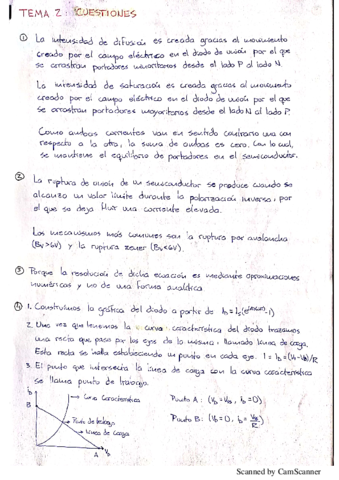 TEMA 2: CUESTIONES
① La intensidad de difusión es creada gracias al movimiento
creado por el campo eléctrico en el diodo de unión por el que
se arrastran portadores minoritarios desde el lado P al lado N.
La intensidad de saturación es creada gracias al movimiento
creado por el campo eléctrico en el diodo de unión por el que
se arrastran portadores mayoritarios desde el lado N al lado P.
Como ambas corrientes van en sentido contrario una con
respecto a la otra, la suma de ambas es cero. Con lo cual,
se mantiene el equilibrio de portadores en el semiconductor.
② La ruptura de unión de un semiconductor se produce cuando se
alcanza un valor límite durante la polarización inversa, por
el que se deja fluir una corriente elevada.
Los mecanismos más comunes son la ruptura por avalancha
(Bv>6V) y la ruptura zener (Bv<6V).
③ Porque la resolución de dicha ecuación es mediante aproximaciones
numéricas y no de una forma analítica.
④ 1. Construimos la gráfica del diodo a partir de
2. Una vez que tenemos la curva característica del diodo trazamos
una recta que pasa por los ejes de la misma, llamada línea de carga.
Esta recta se halla estableciendo un punto en cada eje.
3. El punto que intersecta la línea de carga con la curva característica
se llama punto de trabajo.
Curva Característica
Punto de trabajo
Línea de Carga
B
A
Punto A:
Punto B:
Scanned by CamScanner